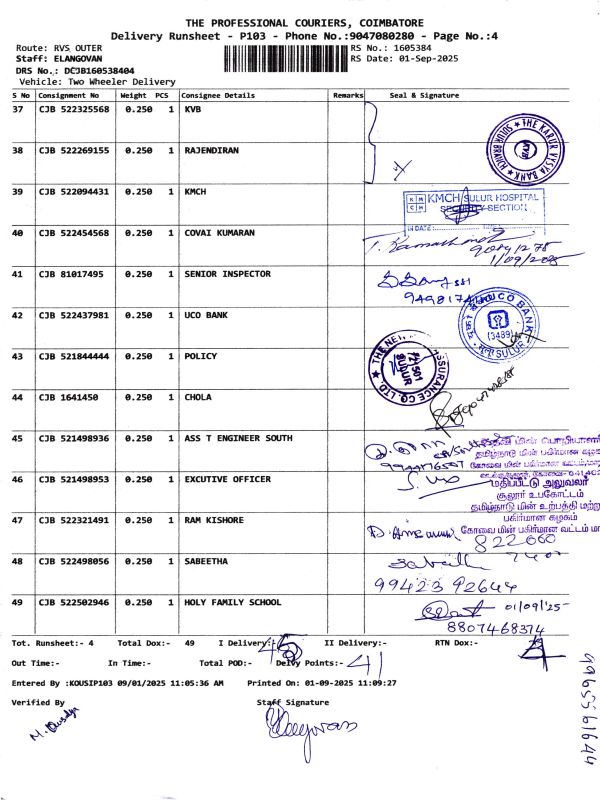 THE PROFESSIONAL COURIERS, COIMBATORE
Delivery Runsheet - P103 - Phone No.:9047080280 - Page No.:4
Route: RVS OUTER
RS No.: 1605384
Staff: ELANGOVAN
RS Date: 01-Sep-2025
DRS No.: DCJB160538404
Vehicle: Two Wheeler Delivery
S No Consignment No Weight PCS Consignee Details Remarks Seal & Signature
37 CJB 522325568 0.250 1 KVB
THE KARUR VYSYA BANK
KVB
SULUR BRANCH
38 CJB 522269155 0.250 1 RAJENDIRAN
39 CJB 522094431 0.250 1 KMCH
KMCH SULUR HOSPITAL
SECURITY SECTION
IN DATE:
40 CJB 522454568 0.250 1 COVAI KUMARAN
1/09/2025
41 CJB 81017495 0.250 1 SENIOR INSPECTOR
42 CJB 522437981 0.250 1 UCO BANK
UCO BANK
(3489)
SULUR
43 CJB 521844444 0.250 1 POLICY
THE NEW
ASSURANCE CO. LTD.
SULUR
44 CJB 1641450 0.250 1 CHOLA
45 CJB 521498936 0.250 1 ASS T ENGINEER SOUTH
46 CJB 521498953 0.250 1 EXCUTIVE OFFICER
மதிப்பீட்டு அலுவலர்
சூலூர் உபகோட்டம்
தமிழ்நாடு மின் உற்பத்தி மற்று
பகிர்மான கழகம்
கோவை மின் பகிர்மான வட்டம்
47 CJB 522321491 0.250 1 RAM KISHORE
48 CJB 522498056 0.250 1 SABEETHA
99423 92644
49 CJB 522502946 0.250 1 HOLY FAMILY SCHOOL
01/09/25
8807468374
Tot. Runsheet:- 4 Total Dox:- 49 I Delivery:- II Delivery:- RTN Dox:-
Out Time:- In Time:- Total POD:- Delvy Points:- 41
Entered By :KOUSIP103 09/01/2025 11:05:36 AM Printed On: 01-09-2025 11:09:27
Verified By Staff Signature
9965561644